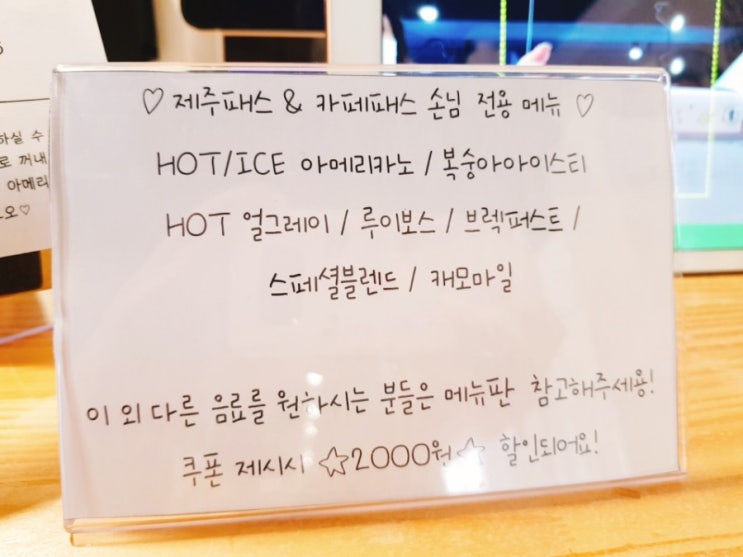 하실 수
로 꺼내
아메리
오♡
♡ 제주패스 & 카페패스 손님 전용 메뉴 ♡
HOT/ICE 아메리카노 / 복숭아아이스티
HOT 얼그레이 / 루이보스 / 브렉퍼스트 /
스페셜블렌드 / 캐모마일
이 외 다른 음료를 원하시는 분들은 메뉴판 참고해주세용!
쿠폰 제시시 ☆2000원☆ 할인되어요!